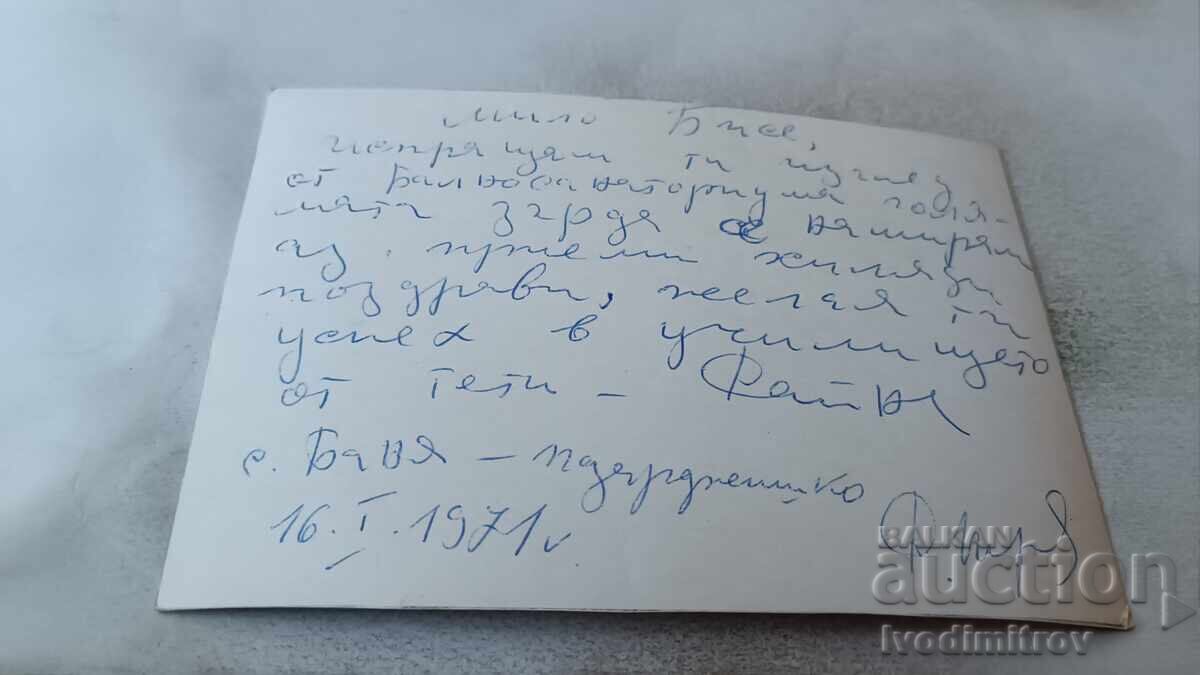 мило Бисе,
испращам ти изглед
от Балносанаториума голя-
мата зграда се намирам
аз. приеми хиляди
поздрави, желая ти
успех в училището
от тети - Фатме
с. Баня - Пазарджишко
16.I.1971г
BALKAN
auction
Ivodimitrov